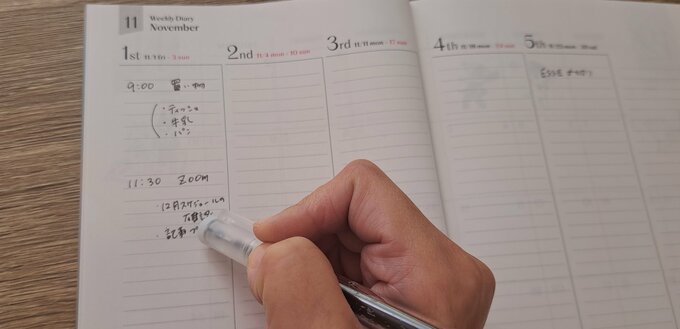 11 Weekly Diary
November
1st 11/1 fri - 3 sun
2nd 11/4 mon - 10 sun
3rd 11/11 mon - 17 sun
4th 11/18 mon - 24 sun
5th
9:00 買い物
・ティッシュ
・牛乳
・パン
11:30 ZOOM
・12月スケジュールの
確認
・記事
ESSE